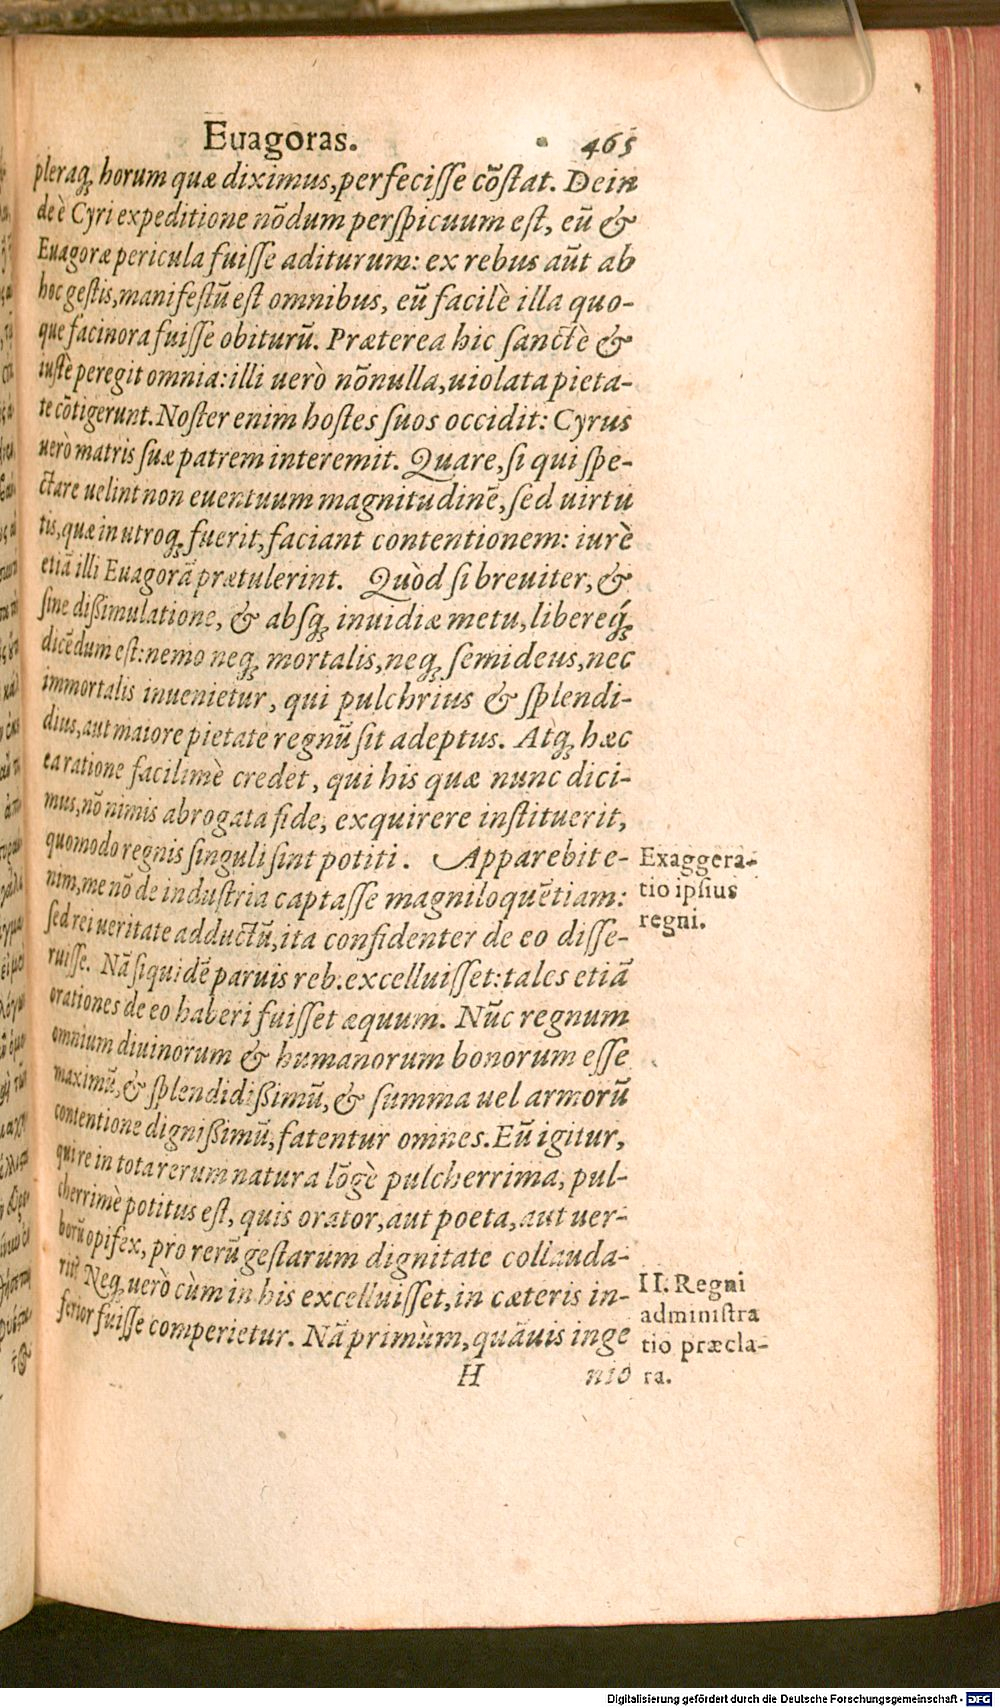 Euagoras. 465
pleraq; horum quæ diximus, perfecisse cõstat. Dein
de è Cyri expeditione nõdum perspicuum est, eũ &
Euagoræ pericula fuisse aditurum: ex rebus aũt ab
hoc gestis, manifestũ est omnibus, eũ facilè illa quo-
que facinora fuisse obiturũ. Præterea hic sanctè &
iustè peregit omnia: illi uerò nõnulla, uiolata pieta-
te cõtigerunt. Noster enim hostes suos occidit: Cyrus
uerò matris suæ patrem interemit. Quare, si qui spe-
ctare uelint non euentuum magnitudinẽ, sed uirtu
tis, quæ in utroq; fuerit, faciant contentionem: iurè
etiã illi Euagorã prætulerint. Quòd si breuiter, &
sine dißimulatione, & absq; inuidiæ metu, libereq́;
dicẽdum est: nemo neq; mortalis, neq; semideus, nec
immortalis inuenietur, qui pulchrius & splendi-
dius, aut maiore pietate regnũ sit adeptus. Atq; hæc
ea ratione facilimè credet, qui his quæ nunc dici-
mus, nõ nimis abrogata fide, exquirere instituerit,
quomodo regnis singuli sint potiti. Apparebit e-
nim, me nõ de industria captasse magniloquẽtiam:
sed rei ueritate adductũ, ita confidenter de eo disse-
ruisse. Nã siquidẽ paruis reb. excelluisset: tales etiã
orationes de eo haberi fuisset æquum. Nũc regnum
omnium diuinorum & humanorum bonorum esse
maximũ, & splendidißimũ, & summa uel armorũ
contentione dignißimũ, fatentur omnes. Eũ igitur,
qui re in tota rerum natura lõgè pulcherrima, pul-
cherrimè potitus est, quis orator, aut poeta, aut uer-
borũ opifex, pro rerũ gestarum dignitate collauda-
rit? Neq; uerò cùm in his excelluisset, in cæteris in-
ferior fuisse comperietur. Nã primùm, quãuis inge
H nio
Exaggera-
tio ipsius
regni.
II. Regni
administra
tio præcla-
ra.
Digitalisierung gefördert durch die Deutsche Forschungsgemeinschaft - DFG